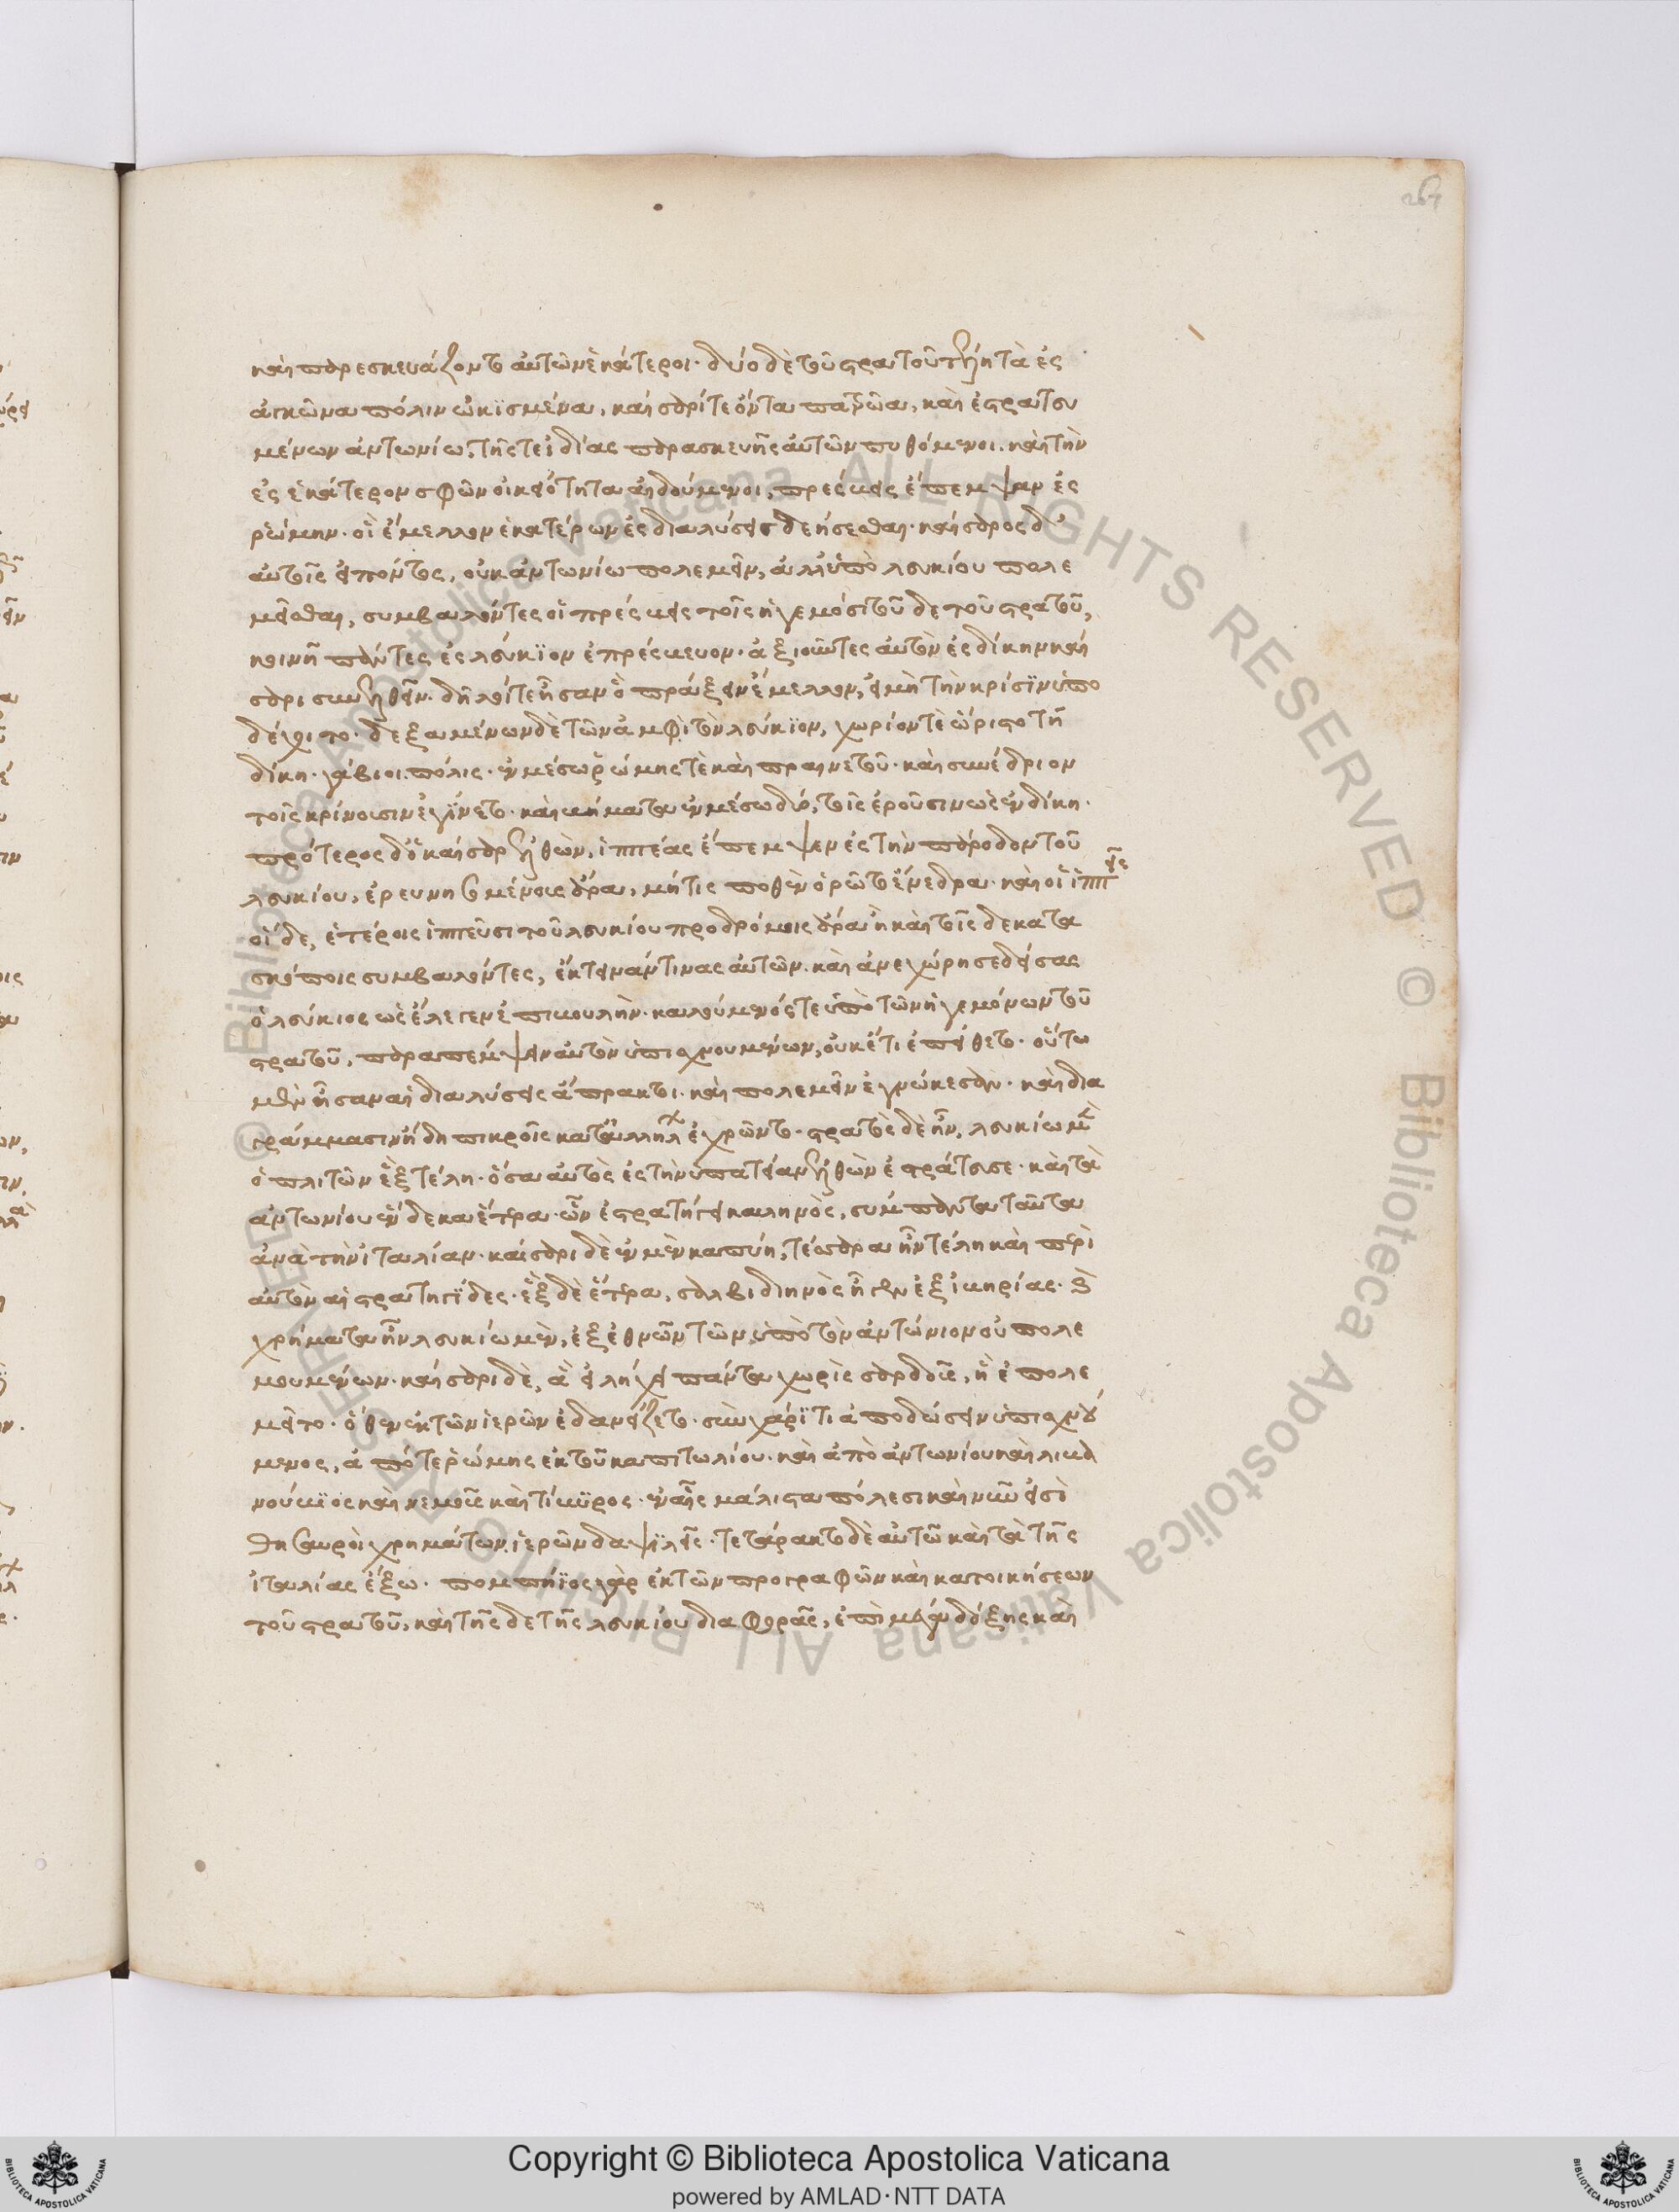 267
καὶ παρεσκευάζοντο αὐτῶν ἑκάτεροι· δύο δὲ τοῦ στρατοῦ τέλη τὰ ἐς
ἀγκῶνα πόλιν ᾠκισμένα, καίσαρί τε ὄντα πατρῷα, καὶ ἐστρατευ
μένων ἀντωνίω, τῆς τε ἰδίας παρασκευῆς αὐτῶν πυθόμενοι. καὶ τὴν
ἐς ἑκάτερον σφῶν οἰκειότητα αἰδούμενοι, πρέσβεις ἔπεμψαν ἐς
ῥώμην. οἳ ἔμελλον ἑκατέρων ἐς διαλύσεις δεήσεσθαι. καίσαρος δ'
αὐτοῖς εἰπόντος, οὐκ ἀντωνίω πολεμεῖν, ἀλλ' ὑπὸ λευκίου πολε
μεῖσθαι, συμβαλόντες οἱ πρέσβεις τοῖς ἡγεμόσι τοῦδε τοῦ στρατοῦ,
κοινῇ πάντες ἐς λεύκιον ἐπρέσβευον. ἀξιοῦντες αὐτὸν ἐς δίκην καί
σαρι συνελθεῖν. δῆλοί τε ἦσαν ὃ πράξειν ἔμελλον, εἰ μὴ τὴν κρίσιν ὑπο
δέχοιτο. δεξαμένων δὲ τῶν ἀμφὶ τὸν λεύκιον, χωρίον τε ὥριστο τῇ
δίκῃ. γάβιοι πόλις. ἐν μέσω ῥώμης τὲ καὶ πραινεστοῦ. καὶ συνέδριον
τοῖς κρίνουσιν ἐγίνετο. καὶ βήματα ἐν μέσω δύο, τοῖς ἐροῦσιν ὡς ἐν δίκῃ.
πρότερος δ' ὁ καῖσαρ ἐλθὼν, ἱππέας ἔπεμψεν ἐς τὴν πάροδον τοῦ
λευκίου, ἐρευνησομένους ἄρα, μή τις ποθὲν ὁρῷτο ἐνέδρα. καὶ οἱ ἱππεῖς
οἵδε, ἑτέροις ἱππεῦσι τοῦ λευκίου προδρόμοις ἄρα ἢ καὶ τοῖσδε κατα
σκόποις συμβαλόντες, ἔκτειναν τινας αὐτῶν. καὶ ἀνεχώρησε δείσας
ὁ λεύκιος ὡς ἔλεγεν ἐπιβουλήν. καλούμενός τε ὑπὸ τῶν ἡγεμόνων τοῦ
στρατοῦ, παραπέμψειν αὐτὸν ὑπισχνουμένων, οὐκέτι ἐπείθετο. οὕτω
μὲν ἦσαν αἱ διαλύσεις ἄπρακτοι. καὶ πολεμεῖν ἐγνώκεσαν. καὶ δια
γράμμασιν ἤδη πικροῖς κατ' ἀλλήλων ἐχρῶντο. στρατὸς δὲ ἦν, λευκίω μὲν
ὁπλιτῶν ἓξ τέλη. ὅσα αὐτὸς ἐς τὴν ὑπατείαν ἐλθὼν ἐστράτευσε. καὶ τὰ
ἀντωνίου ἕνδεκα ἕτερα. ὧν ἐστρατήγει καληνὸς, σύμπαντα ταῦτα
ἀνὰ τὴν ἰταλίαν. καίσαρι δὲ ἐν μὲν καπύῃ, τέσσαρα ἦν τέλη καὶ περὶ
αὐτὸν αἱ στρατηγίδες. ἓξ δὲ ἕτερα, σαλβιδιηνὸς ἦγεν ἐξ ἰβηρίας. καὶ
χρήματα ἦν λευκίω μὲν, ἐξ ἐθνῶν τῶν ὑπὸ τὸν ἀντώνιον οὐ πολε
μουμένων. καίσαρι δὲ, ἃ εἰλήχει πάντα χωρὶς σαρδοῦς, ἣ ἐπολε
μεῖτο. ὅθεν ἐκ τῶν ἱερῶν ἐδανείζετο. σὺν χάριτι ἀποδώσειν ὑπισχνού
μενος, ἀπό τε ῥώμης ἐκ τοῦ καπιτωλίου. καὶ ἀπὸ ἀντωνίου καὶ λικα
νούβιος καὶ νεμοῦς καὶ τίβυρος. ἐν αἷς μάλιστα πόλεσι καὶ νῦν εἰσὶ
θησαυροὶ χρημάτων ἱερῶν δαψιλεῖς. τετάρακτο δὲ αὐτῷ καὶ τὰ τῆς
ἰταλίας ἔξω. πομπήϊος γὰρ ἐκ τῶν προγραφῶν καὶ κατοικήσεων
τοῦ στρατοῦ, καὶ τῆσδε τῆς λευκίου διαφορᾶς, ἐπὶ μέγα δόξης καὶ
Copyright © Biblioteca Apostolica Vaticana
powered by AMLAD・NTT DATA